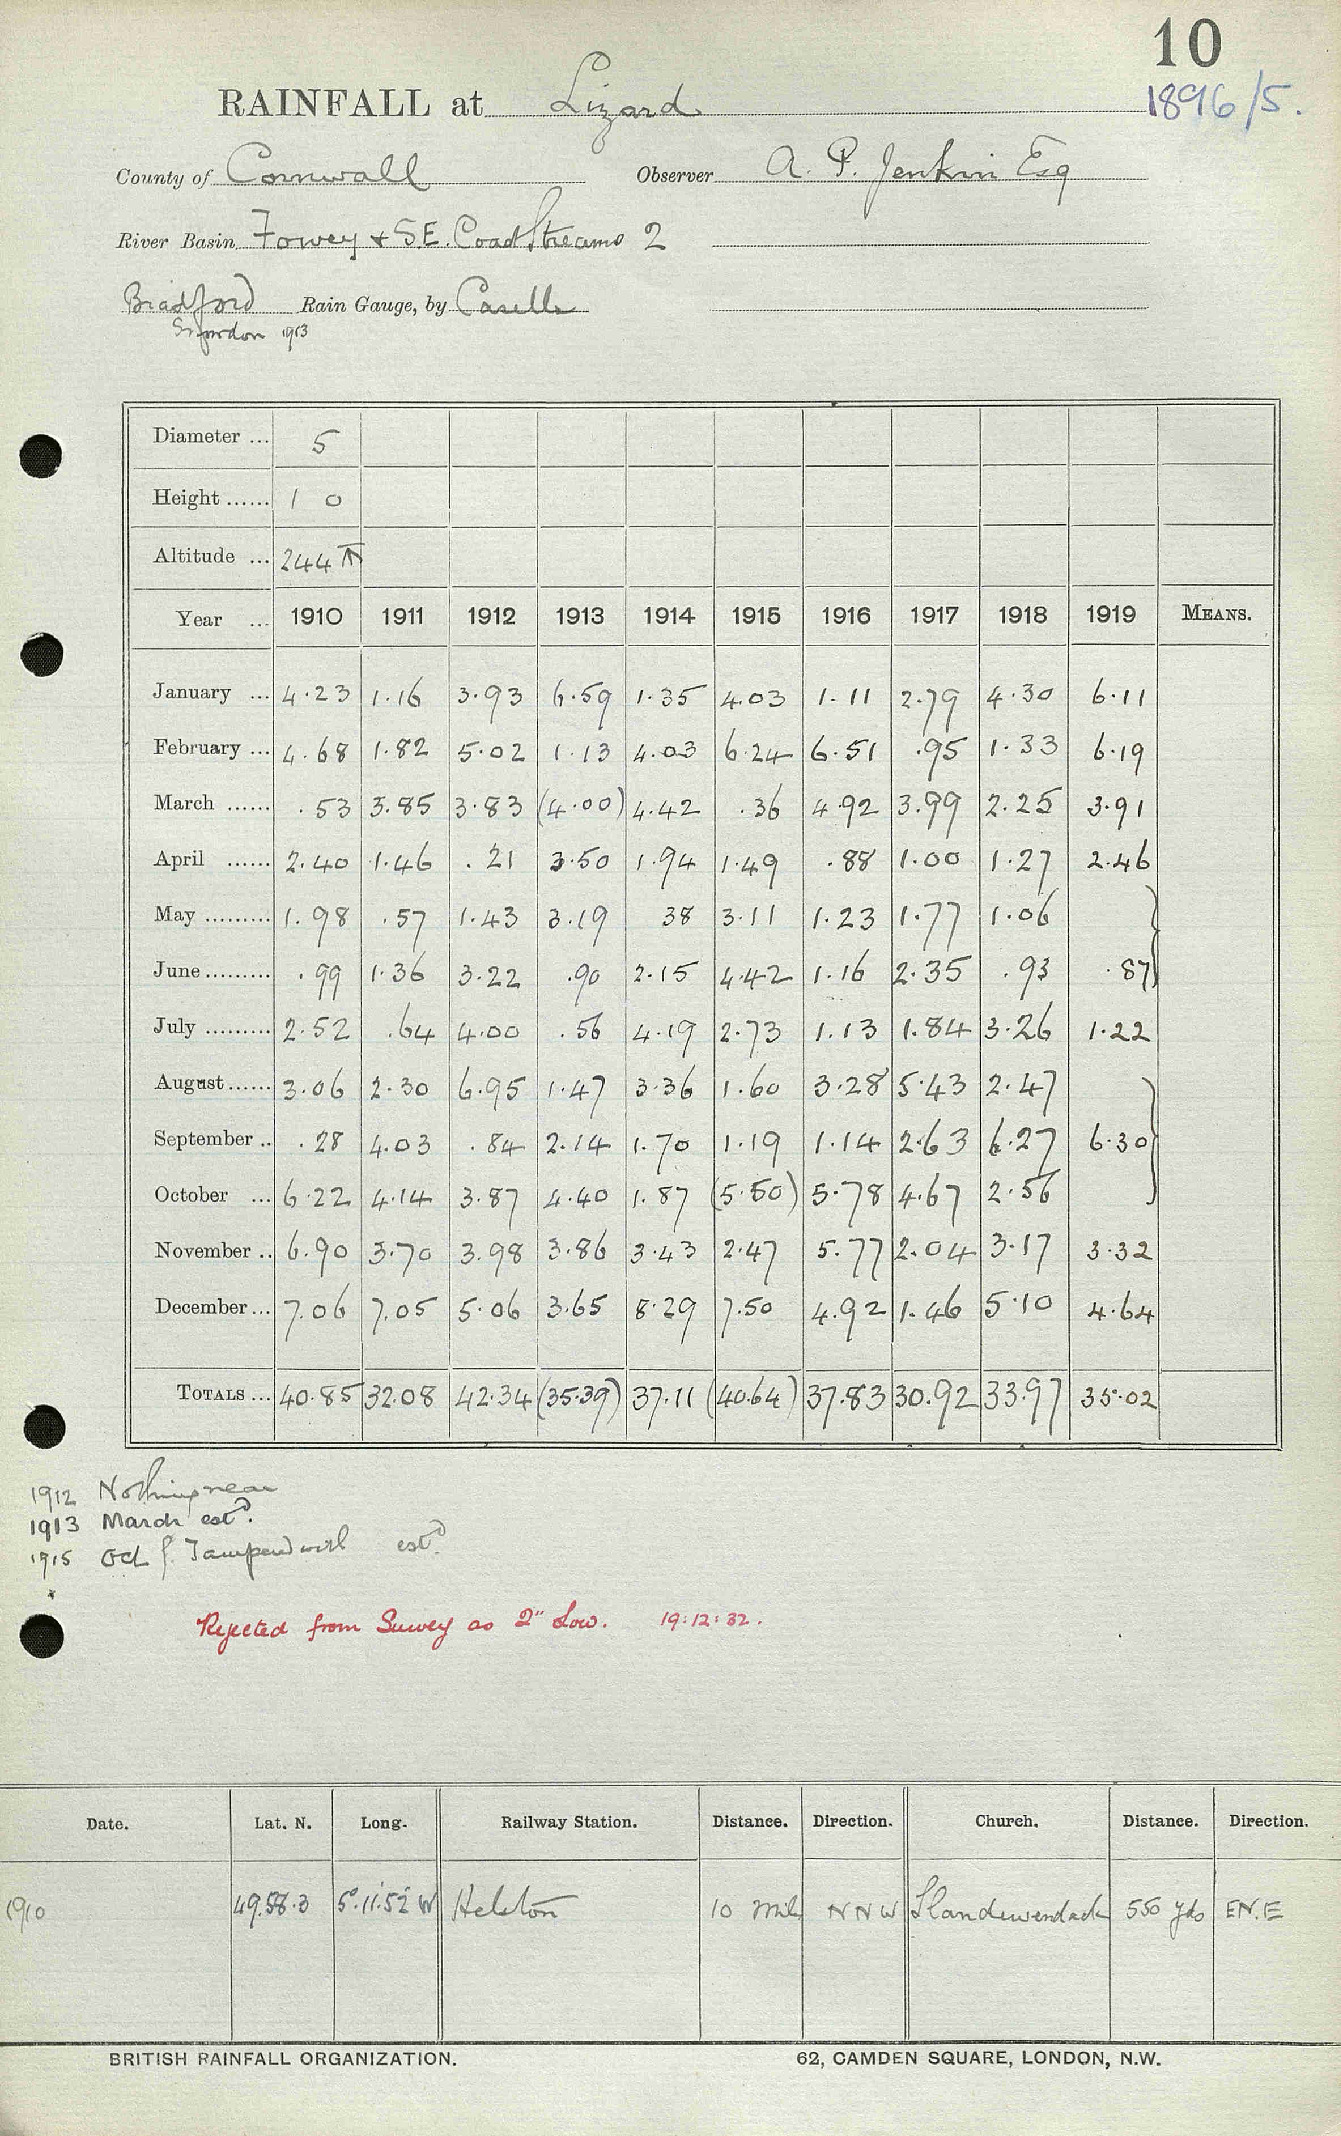 10
RAINFALL at Lizard 1896/5.
County of Cornwall Observer A. P. Jenkin Esq
River Basin Fowey + SE. Coast Streams 2
Bradford Rain Gauge, by Casella
Snowdon 1913
Diameter ... 5
Height ...... 1 0
Altitude ... 244
Year ... 1910 1911 1912 1913 1914 1915 1916 1917 1918 1919 MEANS.
January ... 4.23 1.16 3.93 6.59 1.35 4.03 1.11 2.79 4.30 6.11
February ... 4.68 1.82 5.02 1.13 4.03 6.24 6.51 .95 1.33 6.19
March ...... .53 3.85 3.83 (4.00) 4.42 .36 4.92 3.99 2.25 3.91
April ...... 2.40 1.46 .21 3.50 1.94 1.49 .88 1.00 1.27 2.46
May ......... 1.98 .57 1.43 3.19 38 3.11 1.23 1.77 1.06
June ......... .99 1.36 3.22 .90 2.15 4.42 1.16 2.35 .93 .87}
July ......... 2.52 .64 4.00 .56 4.19 2.73 1.13 1.84 3.26 1.22
August ...... 3.06 2.30 6.95 1.47 3.36 1.60 3.28 5.43 2.47
September .. .28 4.03 .84 2.14 1.70 1.19 1.14 2.63 6.27 6.30}
October ... 6.22 4.14 3.87 4.40 1.87 (5.50) 5.78 4.67 2.56
November .. 6.90 3.70 3.98 3.86 3.43 2.47 5.77 2.04 3.17 3.32
December ... 7.06 7.05 5.06 3.65 8.29 7.50 4.92 1.46 5.10 4.64
TOTALS ... 40.85 32.08 42.34 (35.39) 37.11 (40.64) 37.83 30.92 33.97 35.02
1912 Nothing near
1913 March estd.
1915 Oct f. estd.
Rejected from Survey as 2" low. 19:12:32.
Date. Lat. N. Long. Railway Station. Distance. Direction. Church. Distance. Direction.
1910 49.58.3 5°.11'.52" W Helston 10 Mils NNW Llandewendack 550 yds EN.E
BRITISH RAINFALL ORGANIZATION. 62, CAMDEN SQUARE, LONDON, N.W.